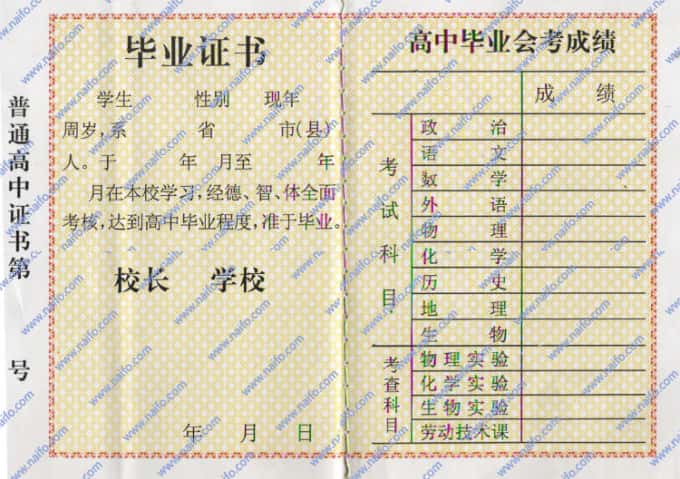 普通高中证书第 号
毕业证书
学生 性别 现年
周岁,系 省 市(县)
人。于 年 月至 年
月在本校学习,经德、智、体全面
考核,达到高中毕业程度,准于毕业。
校长 学校
年 月 日
高中毕业会考成绩
成 绩
考试科目
政 治
语 文
数 学
外 语
物 理
化 学
历 史
地 理
生 物
考查科目
物理实验
化学实验
生物实验
劳动技术课
www.naifo.com